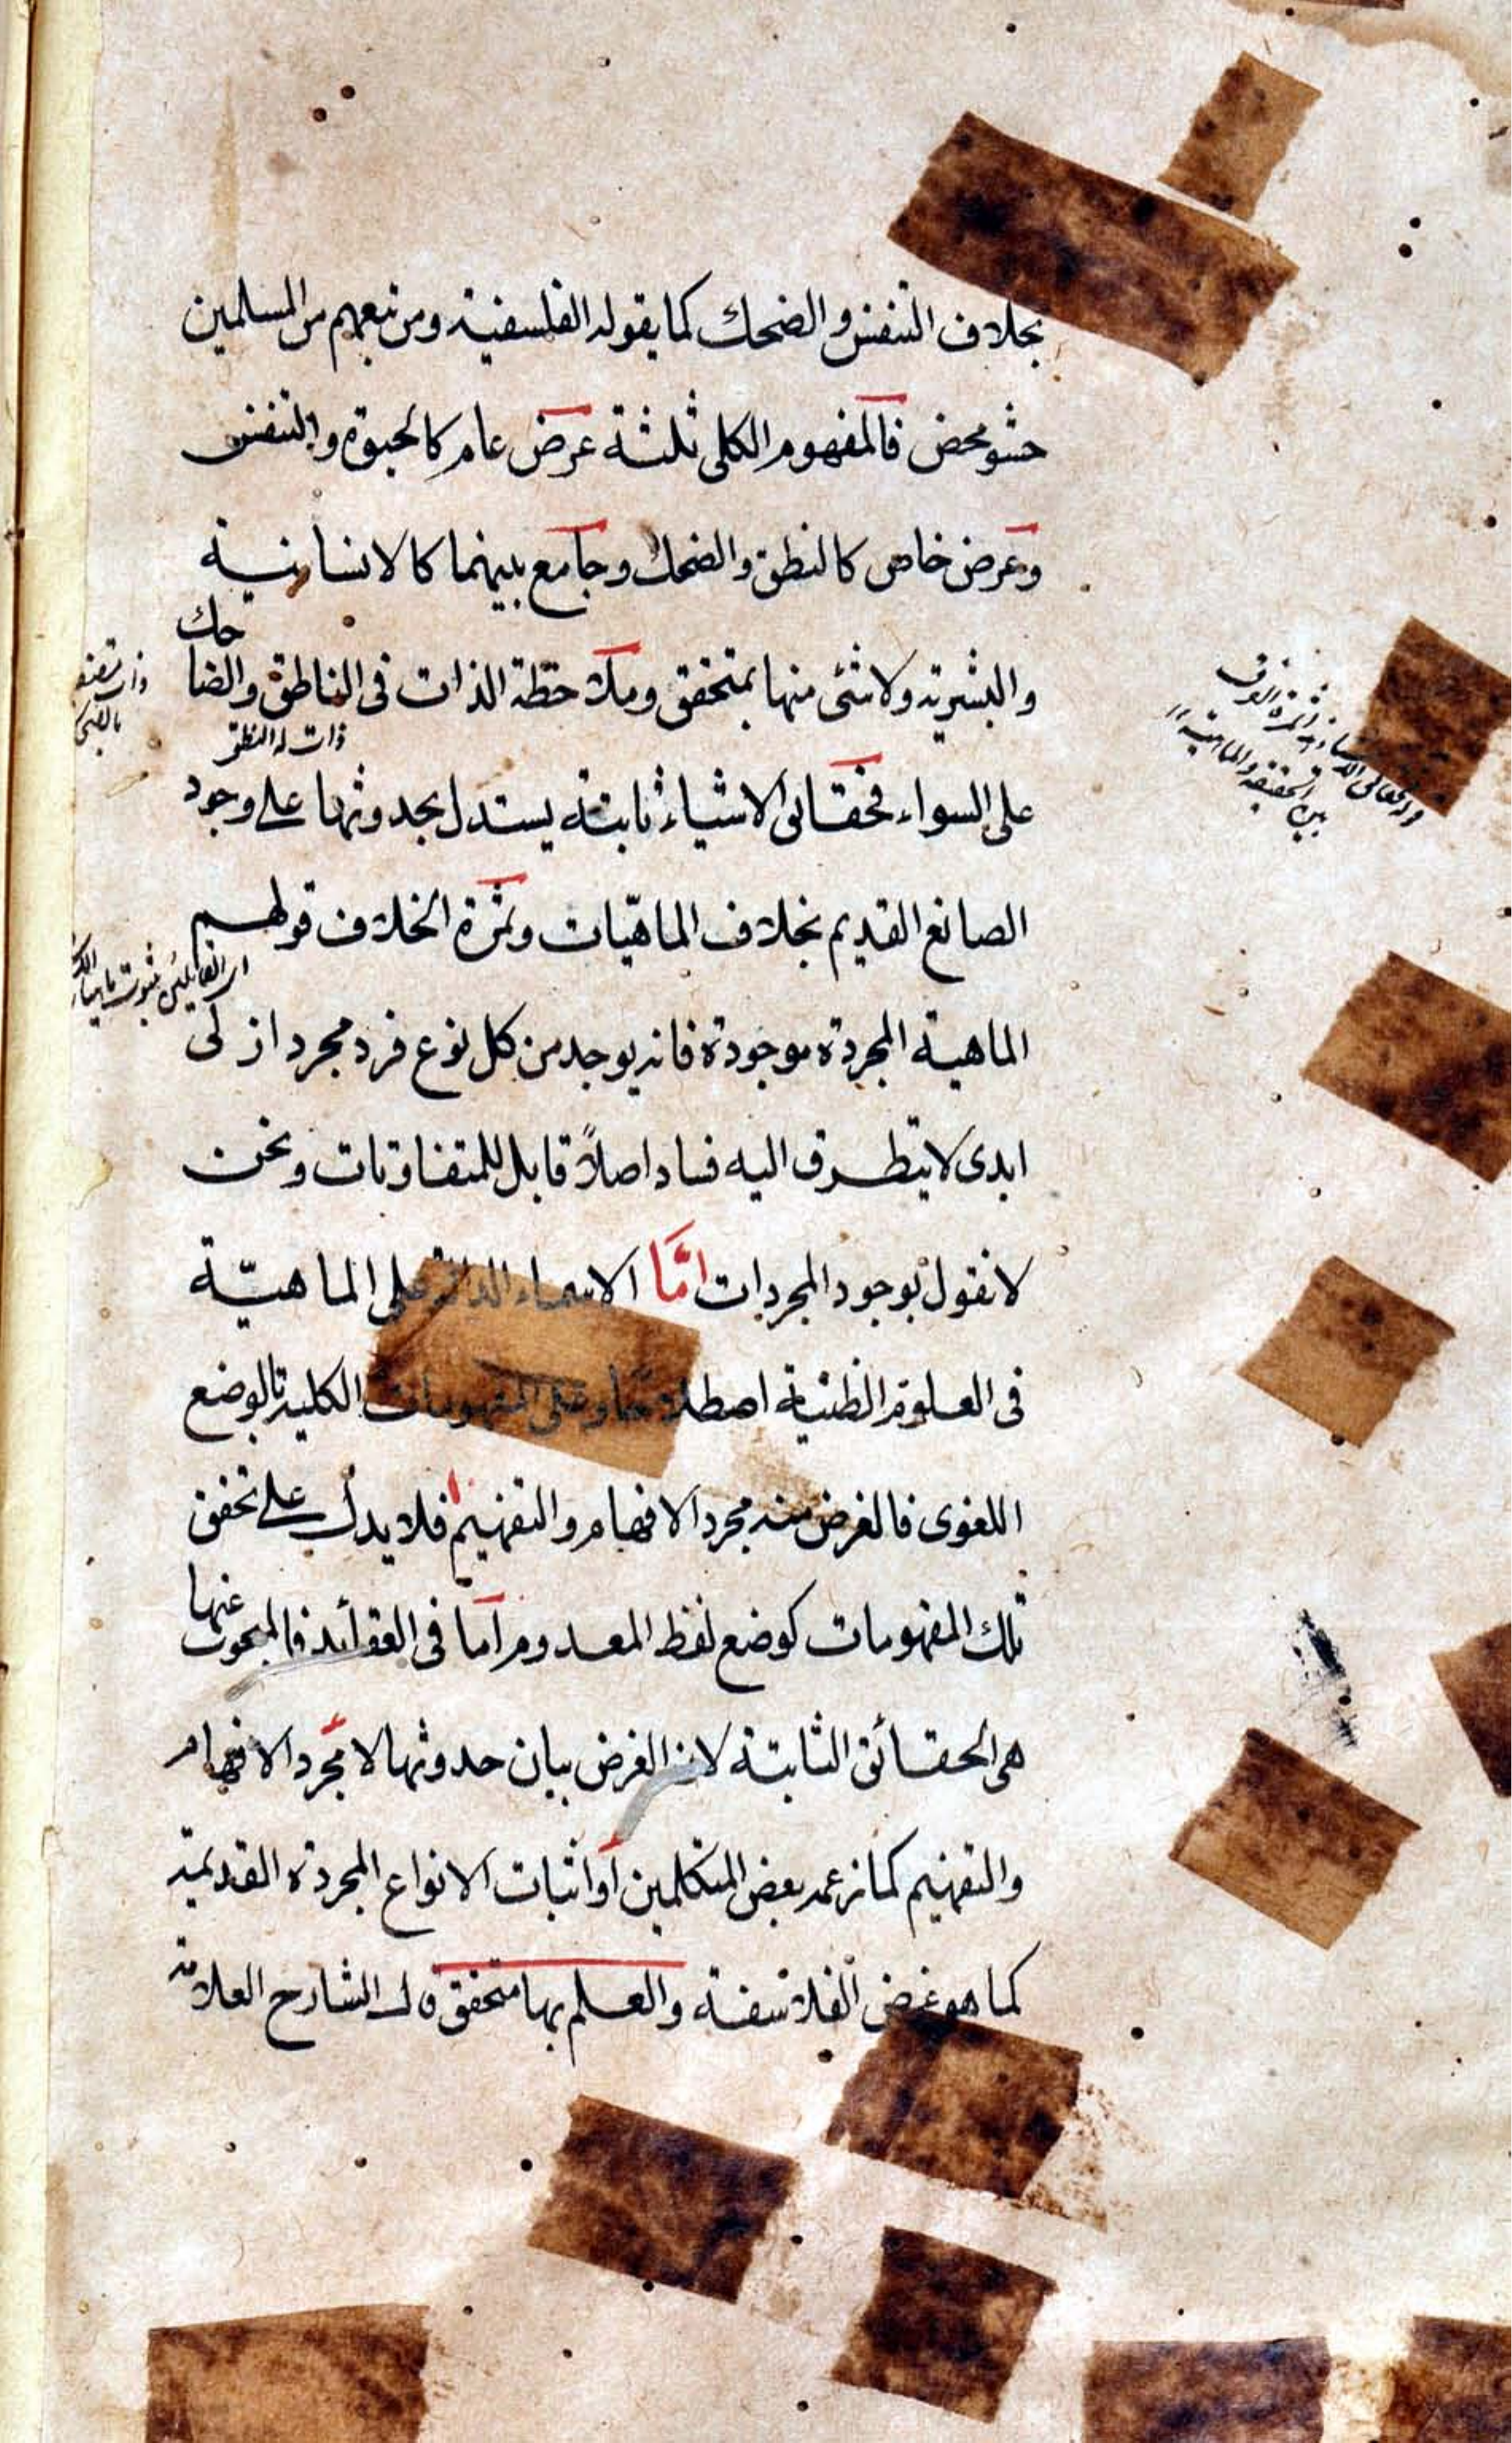 بخلاف التنفس والضحك كما يقوله الفلسفية ومن تبعهم من المسلمين
حشو محض فالمفهوم الكلى ثلثة عرض عام كالحيوة والتنفس
وعرض خاص كالنطق والضحك وجامع بينهما كالانسانية
والبشرية ولا شئ منها بمتحقق وملاحظة الذات فى الناطق والضاحك
ذات له النطق
على السواء فحقائق الاشياء ثابتة يستدل بحدوثها على وجود
الصانع القديم بخلاف الماهيّات وثمرة الخلاف قولهم
الماهية المجردة موجودة فانه يوجد من كل نوع فرد مجرد ازلى
ابدى لا يتطرق اليه فساد اصلاً قابل للمتفاوتات ونحن
لا نقول بوجود المجردات امّا الاسماء الدالة على الماهيّة
فى العلوم الظنية اصطلاحًا وعلى المفهومات الكلية بالوضع
اللغوى فالغرض منه مجرد الافهام والتفهيم فلا يدل على تحقق
تلك المفهومات كوضع لفظ المعدوم اما فى العقائد فالمبحوث عنها
هى الحقائق الثابتة لان الغرض بيان حدوثها لا مجرد الافهام
والتفهيم كما زعمه بعض المتكلمين او اثبات الانواع المجردة القديمة
كما هو غرض الفلاسفة والعلم بها متحقق قال الشارح العلامة